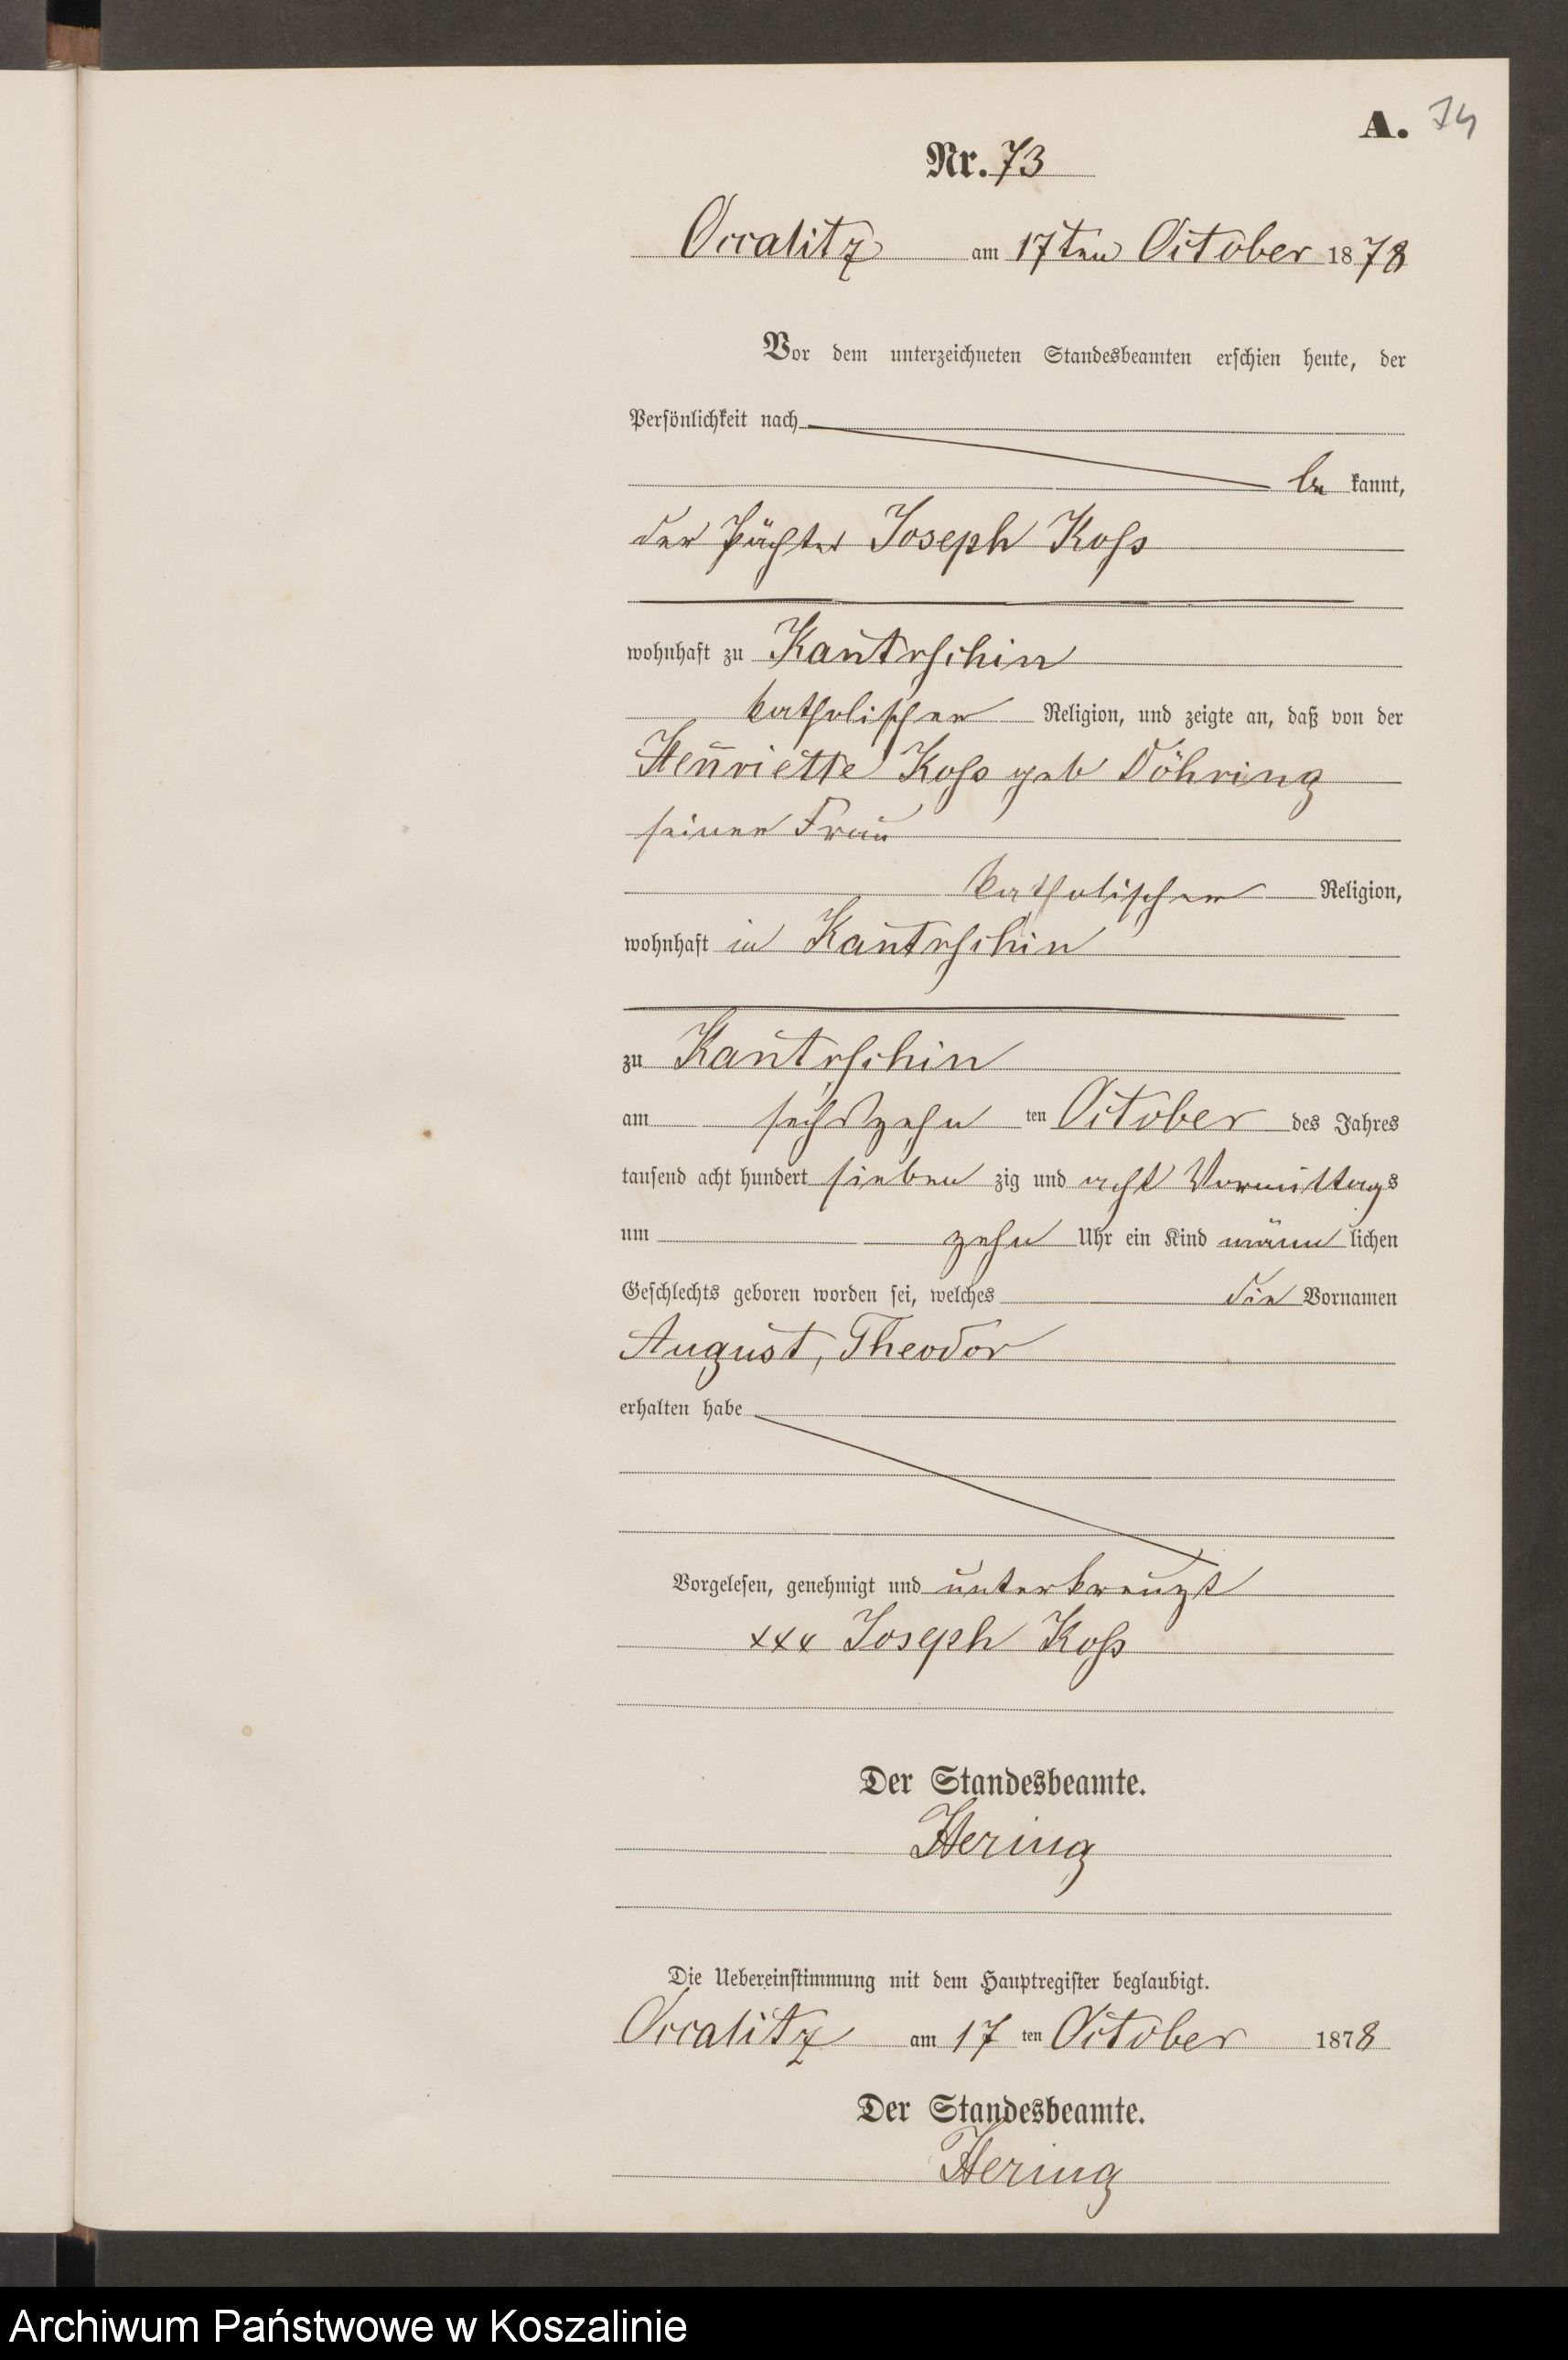 A. 74
Nr. 73
Occalitz am 17ten October 1878
Vor dem unterzeichneten Standesbeamten erschien heute, der
Persönlichkeit nach
be kannt,
der Pächter Joseph Koss
wohnhaft zu Kantrschin
katholischer Religion, und zeigte an, daß von der
Henriette Koss geb Döhring
seiner Frau
katholischer Religion,
wohnhaft in Kantrschin
zu Kantrschin
am sechszehn ten October des Jahres
tausend acht hundert sieben zig und acht Vormittags
um zehn Uhr ein Kind männ lichen
Geschlechts geboren worden sei, welches die Vornamen
August, Theodor
erhalten habe
Vorgelesen, genehmigt und unterkreuzt
xxx Joseph Koss
Der Standesbeamte.
Hering
Die Uebereinstimmung mit dem Hauptregister beglaubigt.
Occalitz am 17 ten October 1878
Der Standesbeamte.
Hering
Archiwum Państwowe w Koszalinie